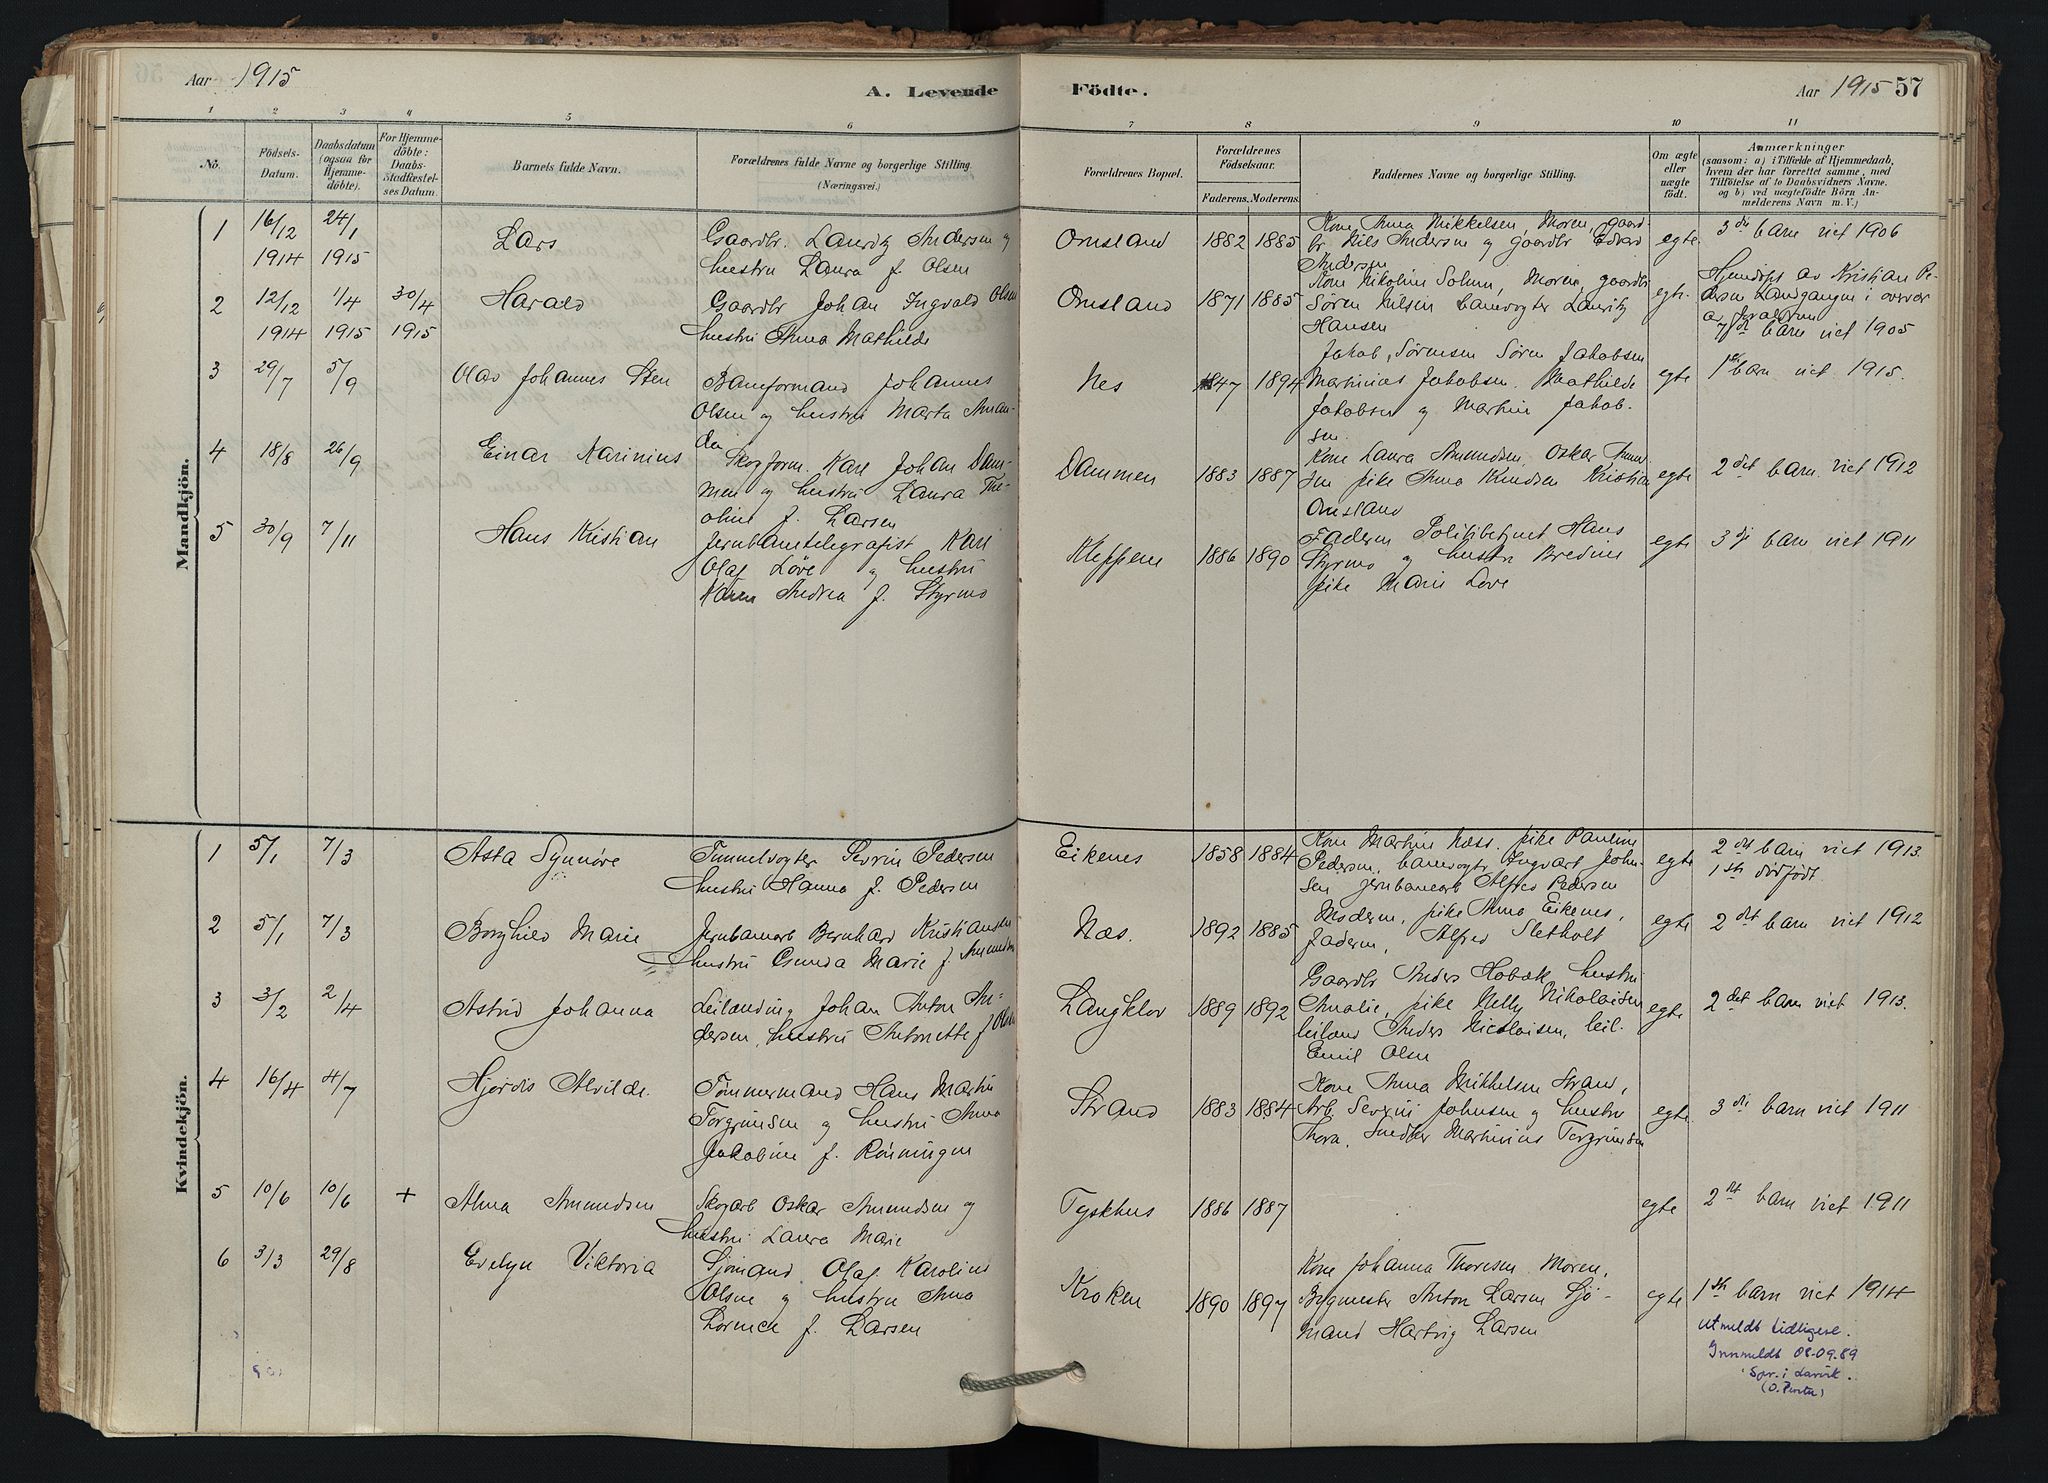 Aar 1915
A. Levende Födte.
Aar 1915 57
1 2 3 4 5 6 7 8 9 10 11
No.
Födsels-
Datum.
Daabsdatum
(ogsaa for
Hjemme-
döbte).
For Hjemme-
döbte:
Daabs-
Stadfæstel-
ses Datum.
Barnets fulde Navn.
Forældrenes fulde Navne og borgerlige Stilling.
(Næringsvei.)
Forældrenes Bopæl.
Forældrenes
Födselsaar.
Faderens. Moderens.
Faddernes Navne og borgerlige Stilling.
Om ægte
eller
uægte
født.
Anmærkninger
(saasom: a) i Tilfælde af Hjemmedaab,
hvem der har forrettet samme, med
Tilföielse af to Daabsvidners Navne.
og b) ved uægtefödte Börn An-
melderens Navn m. V.)
Mandkjön.
1
16/12
1914
24/1
1915
Lars
Gaardbr. Lauritz Andersen og
hustru Laura f. Olsen
Omsland
1882 1885
Kone Anna Mikkelsen, Moren, gaard-
br Nils Andersen og gaardbr Edvard
Andersen
egte
3die barn viet 1906
2
12/12
1914
1/4
1915
30/4
1915
Harald
Gaardbr Johan Ingvald Olsen
hustru Anna Mathilde
Omsland
1871 1885
Kone Nikoline Solum, Moren, gaardbr
Søren Nilsen banevogter Lauritz
Hansen
egte
Hjemdøpt av Kristian Pe-
dersen Landgangen i overvær
av
7de barn viet 1905
3
29/7
5/9
Olav Johannes Sten
Baneformand Johannes
Olsen og hustru Marta Aman-
da
Nes
1847 1894
Jakob Sørensen Søren Jakobsen
Martinius Jakobsen. Mathilde
Jakobsen og Martin Jakob-
sen.
egte
1ste barn viet 1915.
4
18/8
26/9
Einar Marinius
Skogform. Karl Johan Dam-
men og hustru Laura The-
oline f. Larsen
Dammen
1883 1887
Kone Laura Amundsen, Oskar Amund-
sen pike Anna Knudsen Kristian
Omsland
egte
2det barn viet 1912
5
30/9
7/11
Hans Kristian
Jernbanetelegrafist Karl
Olaf Löve og hustru
Karen Andrea f. Styrmo
Kleppene
1886 1890
Faderen Politibetjent Hans
Styrmo og hustru
pike Marie Løve
egte
3dje barn viet 1911
Kvindekjön.
1
5/1
7/3
Asta Synnøve
Tunnelvogter Sevrin Pedersen
hustru Hanna f. Pedersen
Eikenes
1858 1884
Kone Martine Næss. pike Pauline
Pedersen, banevogter Ingvart John-
sen jernbanearb Alfred Pedersen
egte
2det barn viet 1913.
1ste dødfødt.
2
5/1
7/3
Borghild Marie
Jernbanearb Bernhard Kristiansen
hustru Gunda Marie f Amundsen
Næs.
1892 1885
Moderen, pike Anna Eikenes,
Faderen, Alfred Sletholt
egte
2det barn viet 1912
3
3/2
2/4
Astrid Johanna
Leilending Johan Anton An-
dersen, hustru Antonette f Olsen
Langklov
1889 1892
Gaardbr Anders Hobæk, hustru
Amalie, pike Nelly Nikolaisen
leilend Anders Nicolaisen, leil.
Emil Olsen
egte
2det barn viet 1913.
4
16/4
4/7
Hjørdis Alvilde.
Tømmermand Hans Martin
Torgrimsen og hustru Anna
Jakobine f. Rønningen
Strand
1883 1884
Kone Anna Mikkelsen Strand,
Arb Severin Johnsen og hustru
Thora, Snedker Martinius Torgrimsen
egte
3die barn viet 1911
5
10/6
10/6
+
Alma Amundsen
Skogarb Oskar Amundsen og
hustru Laura Marie
Tyskhus
1886 1887
egte
2det barn viet 1911
6
3/3
29/8
Evelyn Viktoria
Sjømand Olaf Karolius
Olsen og hustru Anna
f. Larsen
Kroken
1890 1897
Kone Johanna Thoresen Moren,
Bygmester Anton Larsen Sjø-
mand Hartvig Larsen
egte
1ste barn viet 1914
Utmeldt tidligere.
Innmeldt 08-09.89
Spr. i Larvik.